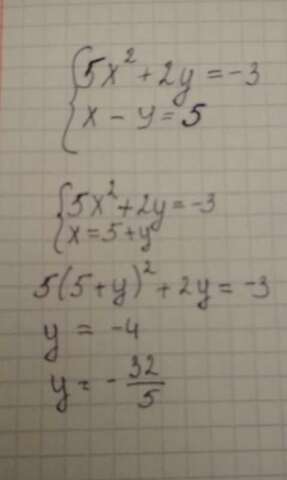 5x² + 2y = -3
x - y = 5
5x² + 2y = -3
x = 5 + y
5(5 + y)² + 2y = -3
y = -4
y = -32/5